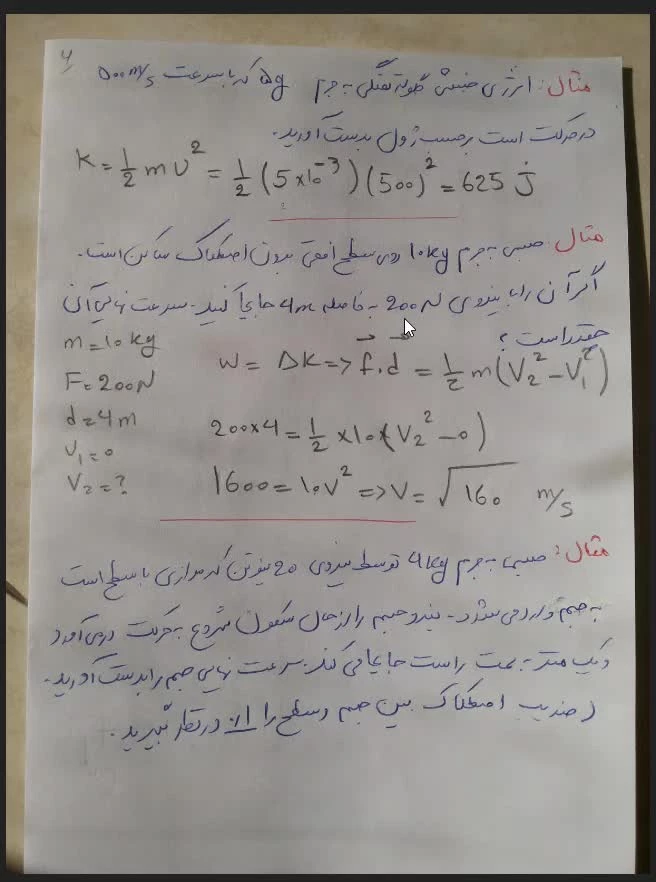 ۴
مثال: انرژی جنبشی گلوله تفنگی به جرم 5g که با سرعت 500 m/s
در حرکت است برحسب ژول بدست آورید.
K = 1/2 m v² = 1/2 (5×10⁻³)(500)² = 625 J
مثال: جسمی به جرم 10 kg روی سطح افقی بدون اصطکاک ساکن است.
اگر آن را با نیروی 200 N به فاصله 4m جابجا کنید. سرعت نهایی آن
چقدر است؟
m = 10 kg
F = 200 N
d = 4 m
V₁ = 0
V₂ = ?
W = ΔK => f⃗.d⃗ = 1/2 m(V₂² - V₁²)
200×4 = 1/2 ×10×(V₂² - 0)
1600 = 10V² => V = √160 m/s
مثال: جسمی به جرم 4 kg توسط نیروی 20 نیوتن که موازی با سطح است
به جسم وارد می شود. نیرو جسم را از حال سکون شروع به حرکت درمی آورد
و یک متر به سمت راست جابجا می کند. سرعت نهایی جسم را بدست آورید.
(ضریب اصطکاک بین جسم و سطح را در نظر بگیرید.